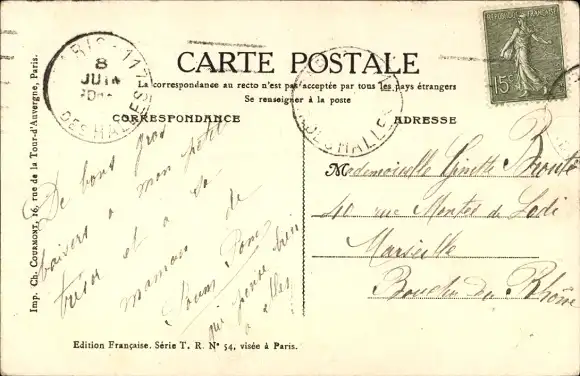 CARTE POSTALE
La correspondance au recto n'est pas acceptée par tous les pays étrangers
Se renseigner à la poste
CORRESPONDANCE
ADRESSE
PARIS · 11
8
JUIN
DES HALLES
DES HALLES
15c
De bons gros
baisers à mon petit
trésor et à sa
maman de
qui pense bien
à elles
Mademoiselle Ginette
40 rue Montée de Lodi
Marseille
Bouches du Rhône
Imp. Ch. COURMONT, 16, rue de la Tour-d'Auvergne, Paris.
Edition Française. Série T. R. N° 54, visée à Paris.